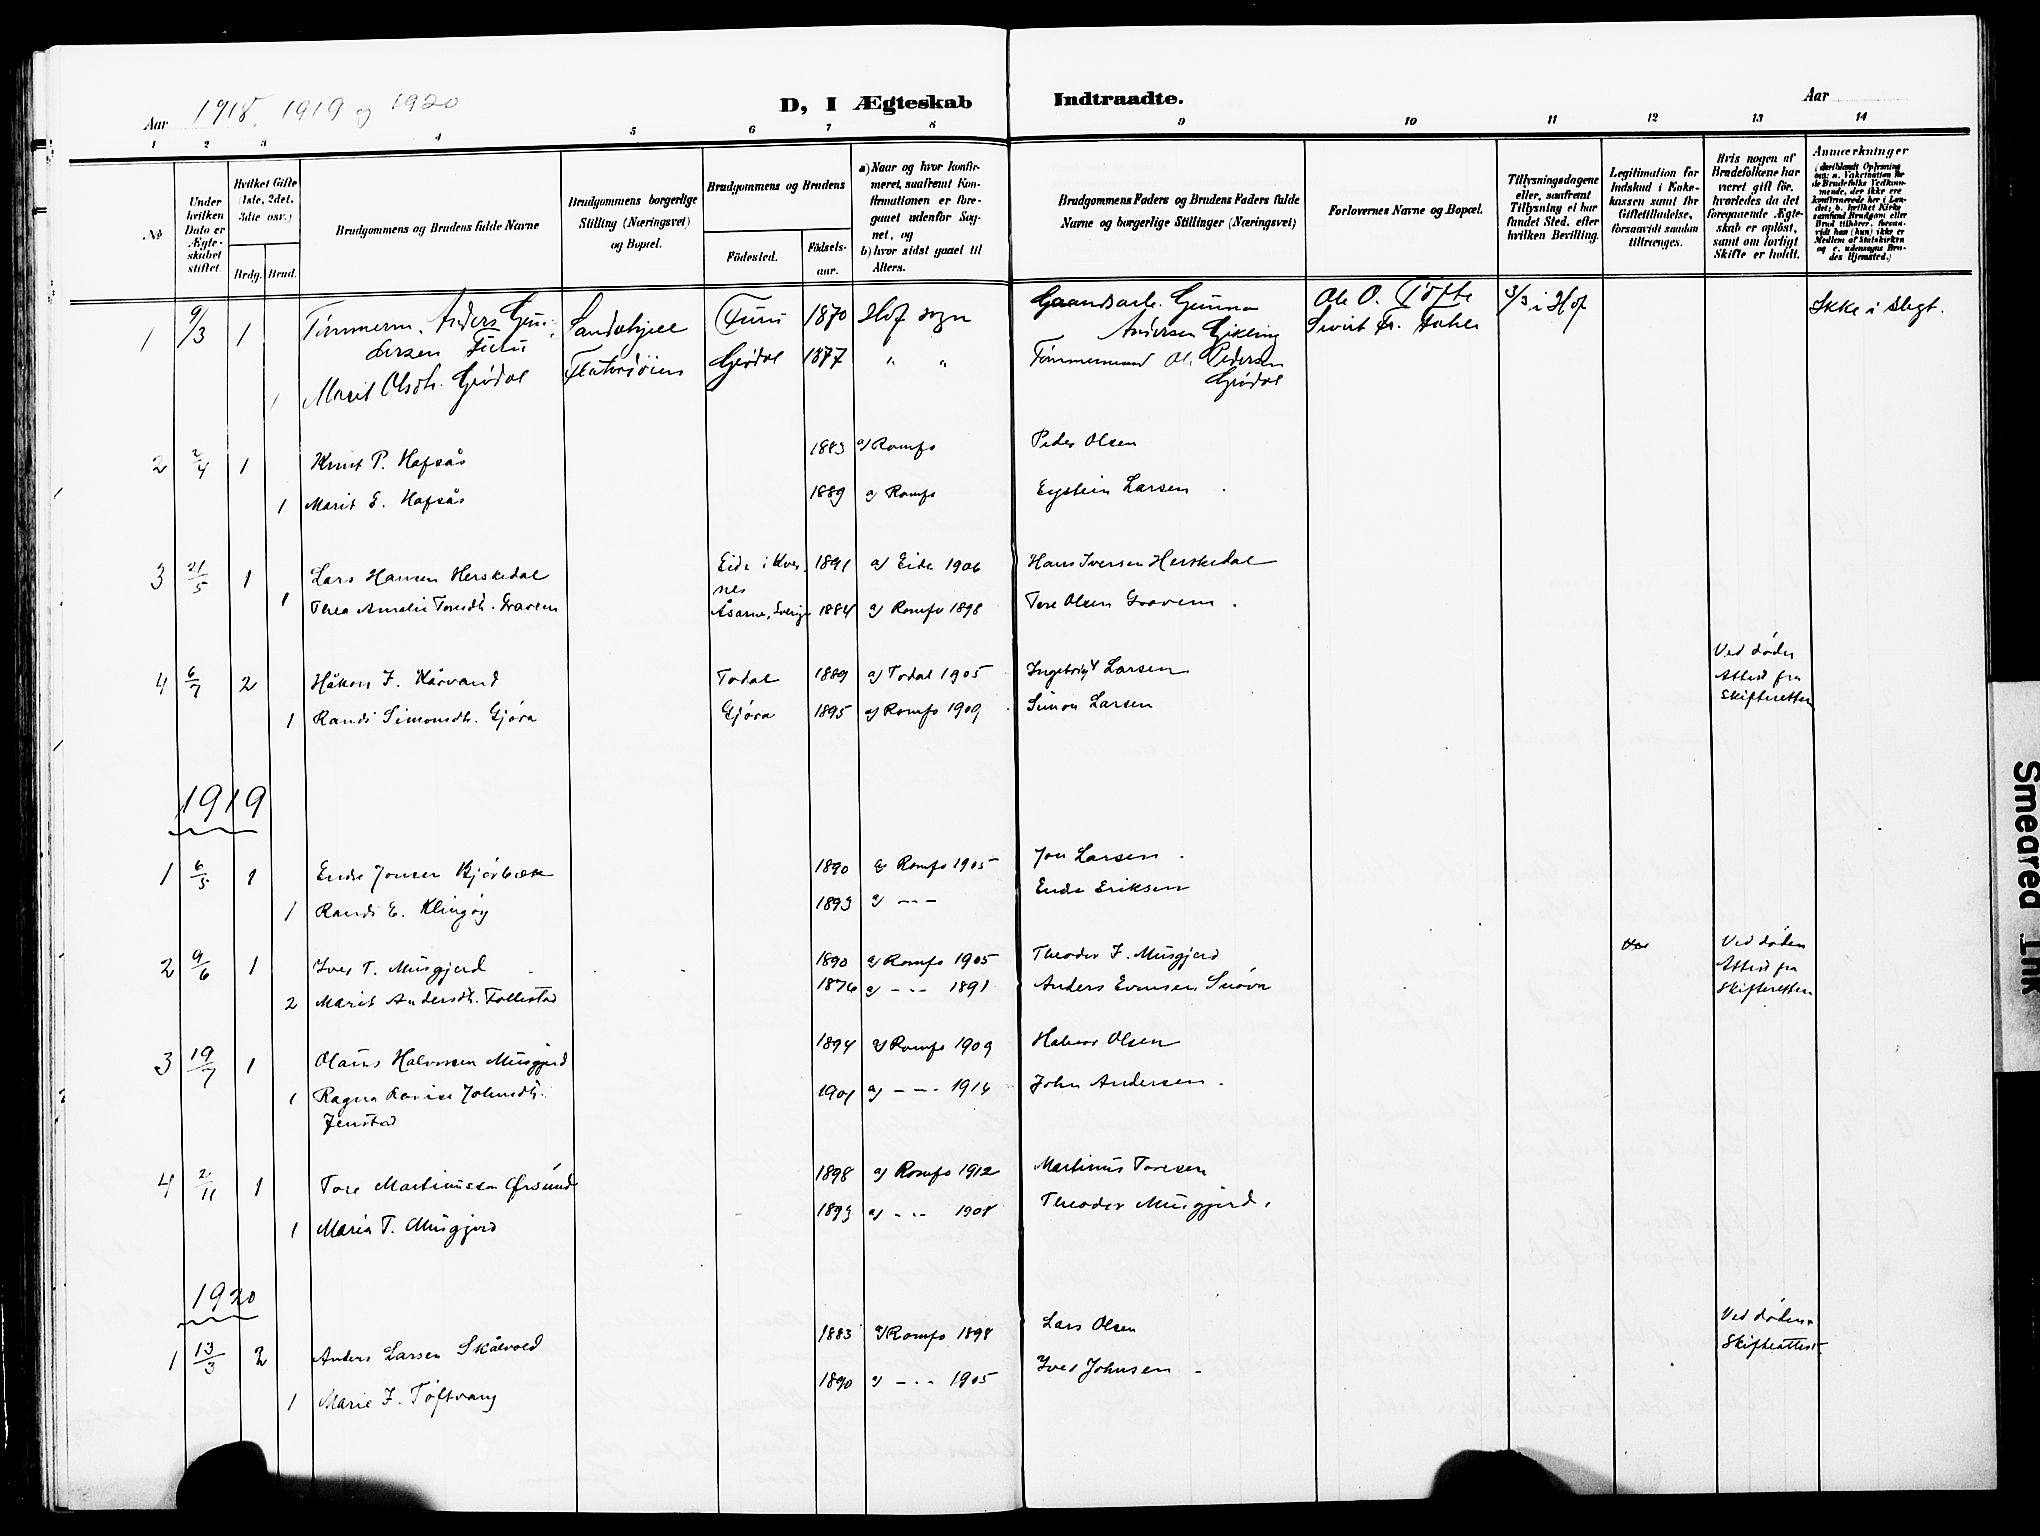 Aar 1918, 1919 og 1920
D, I Ægteskab Indtraadte.
Aar
1 2 3 4 5 6 7 8 9 10 11 12 13 14
No
Under hvilken Dato er Ægteskabet stiftet.
Hvilket Gifte (1ste, 2det, 3die osv.)
Brdg. Brud.
Brudgommens og Brudens fulde Navne
Brudgommens borgerlige Stilling (Næringsvei) og Bopæl.
Brudgommens og Brudens
Födested.
Födselsaar.
a) Naar og hvor konfirmeret, saafremt Konfirmationen er foregaaet udenfor Sognet, og
b) hvor sidst gaaet til Alters.
Brudgommens Faders og Brudens Faders fulde Navne og borgerlige Stillinger (Næringsvei)
Forlovernes Navne og Bopæl.
Tillysningsdagene eller, saafremt Tillysning ei har fundet Sted, efter hvilken Bevilling.
Legitimation for Indskud i Enkekassen samt for Giftetilladelse, forsaavidt saadan tiltrænges.
Hvis nogen af Brudefolkene har været gift før, hvorledes da det foregaaende Ægteskab er opløst, samt om lovligt Skifte er holdt.
Anmærkninger
1 9/3 1 Tømmerm. Anders Gun- Furu 1870 Hof sogn Gunnar Ole O. Tøfte 3/3 i Hof Ikke i slegt.
dersen Furu Andersen Gikling Sivert Fr. Dahle
1 Marit Olsdt. Grødal Grødal 1877 " " Tømmermand Ole Pedersen
Grødal
2 2/4 1 Knut P. Hafsås 1883 a/ Romfo Peder Olsen
1 Marit E. Hafsås 1889 a/ Romfo Eystein Larsen
3 21/5 1 Lars Hansen Herskedal Eide i Kver- 1891 a/ Eide 1906 Hans Iversen Herskedal
nes
1 Terea Amalie Toresdt. Gravem Åsarne, Sverige 1884 a/ Romfo 1898 Tore Olsen Gravem
4 6/7 2 Håkon I. Kårvand Todal 1889 a/ Todal 1905 Ingebrigt Larsen Ved døden
Attest fra
Skifteretten
1 Randi Simonsdt. Gjøra Gjøra 1895 a/ Romfo 1909 Simon Larsen
1919
1 6/5 1 Endre Jonsen Bjørbæk 1890 a/ Romfo 1905 Jon Larsen
1 Randi E. Klingøy 1893 a/ - - - Endre Eriksen
2 9/6 1 Iver T. Musgjerd 1890 a/ Romfo 1905 Theodor I. Musgjerd Ved døden
Attest fra
2 Marit Andersdt. Follestad 1876 a/ - - - 1891 Anders Evensen Snøva Skifteretten
3 19/7 1 Olaus Halvorsen Musgjerd 1894 a/ Romfo 1909 Halvor Olsen
1 Ragna Lovise Johnsdt. 1901 a/ - - - 1916 John Andersen
Jenstad
4 2/11 1 Tore Martinussen Ørsund 1898 a/ Romfo 1912 Martinus Toresen
1 Maria T. Musgjerd 1893 a/ - - - 1908 Theodor Musgjerd
1920
1 13/3 2 Anders Larsen Skålvold 1883 a/ Romfo 1898 Lars Olsen Ved døden
Skifteattest
1 Marie I. Tøftvang 1890 a/ - - - 1905 Iver Johnsen
Smeared Ink